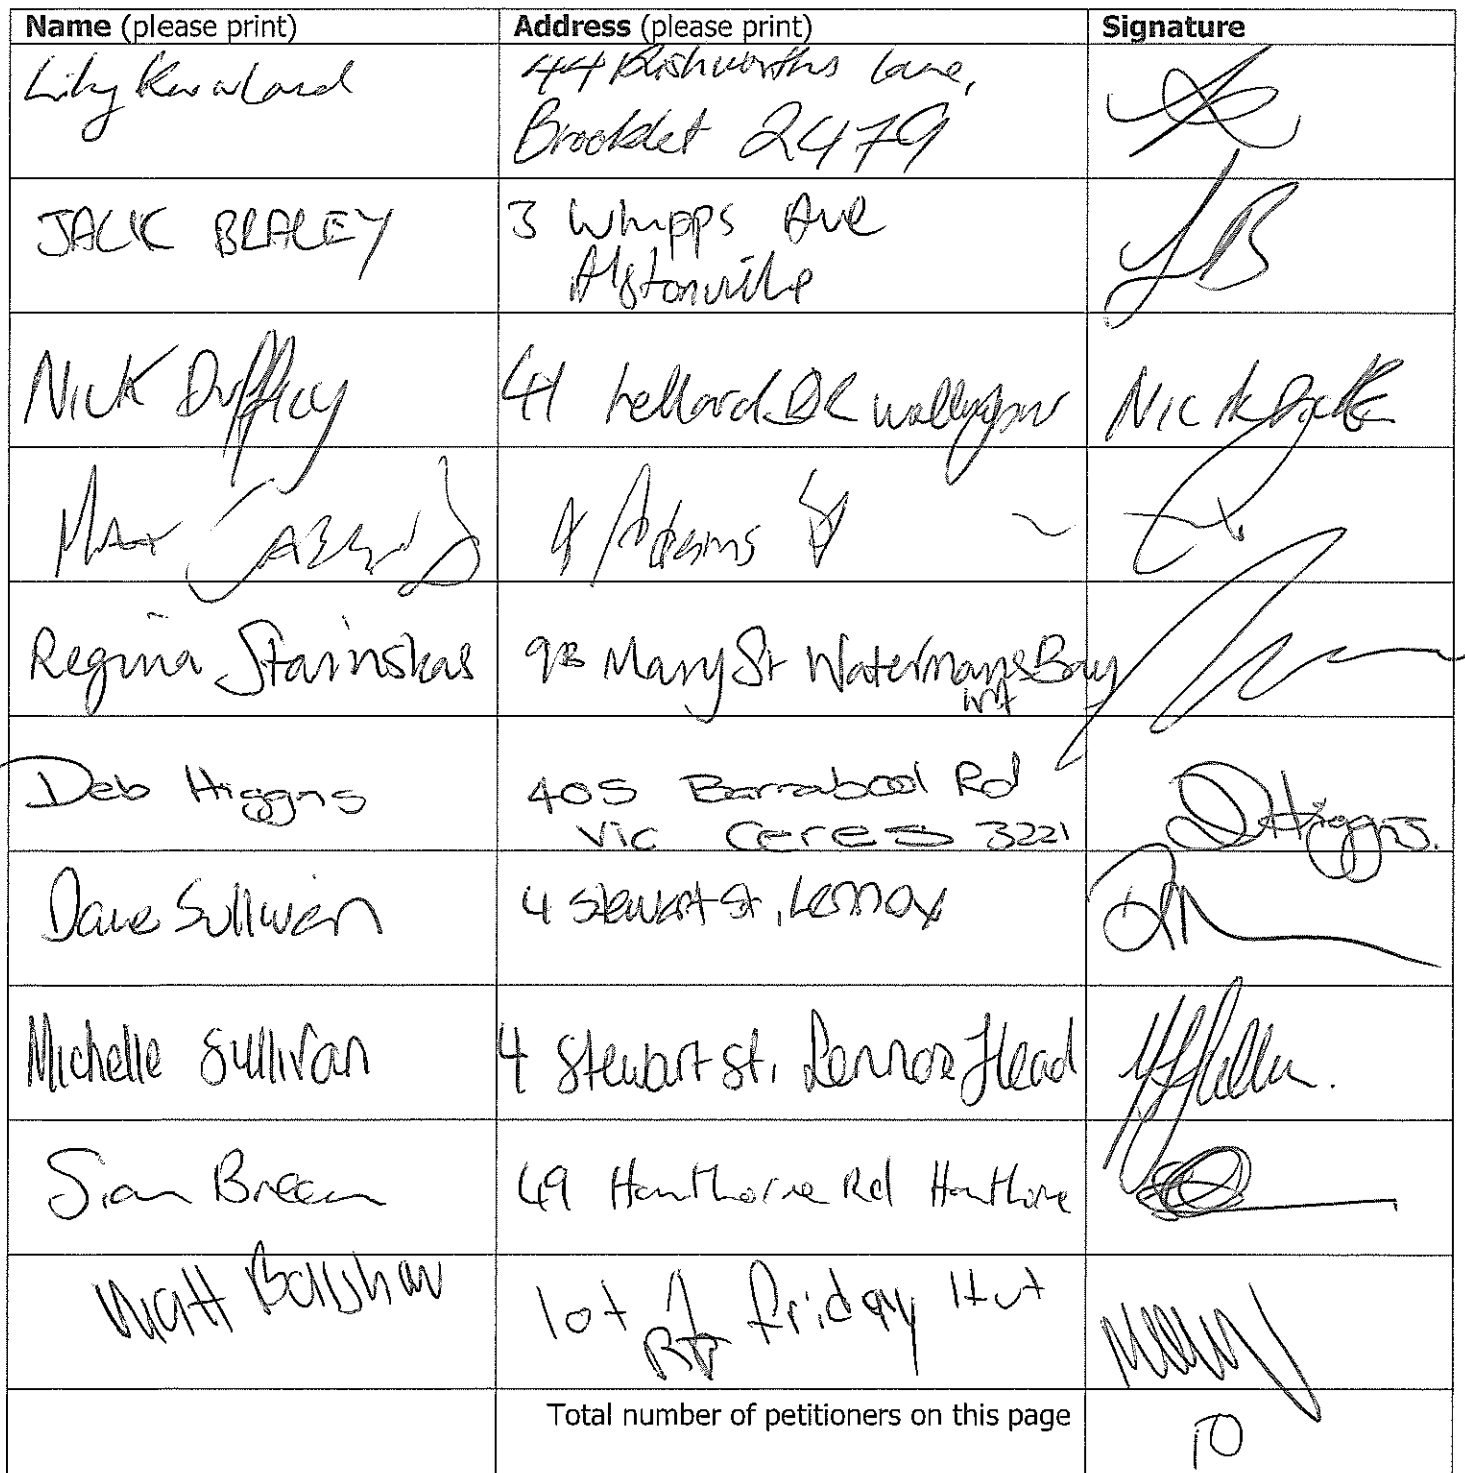 Name (please print) Address (please print) Signature
Lily 44 Rishworths Lane,
Brooklet 2479
JACK BEALEY 3 Whipps Ave JB
Alstonville
NICK Duffley 41 DR Nick
Max Adams St
Regina Stainskas 9B Mary St Watermans Bay
WA
Deb Higgns 405 Barrabool Rd D Higgns.
Vic Ceres 3221
Dave Sullivan 4 Stewart St, Lennox
Michelle Sullivan 4 Stewart St, Lennox Head
Sian Breen 49 Hawthorne Rd
Matt lot 1 Friday Hut
Rd
Total number of petitioners on this page 10